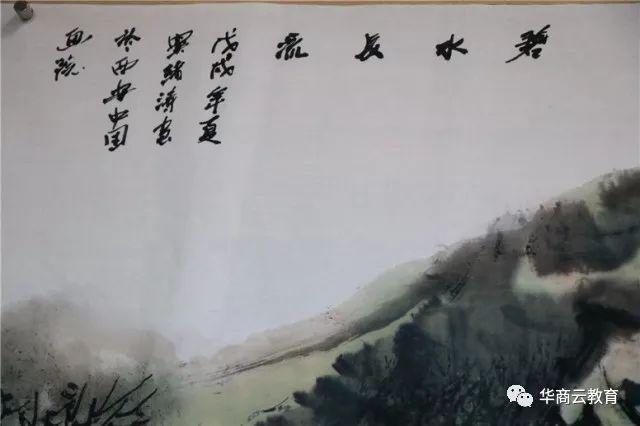 碧水长流
戊戌年夏
绪涛
於西安中国
画院
华商云教育